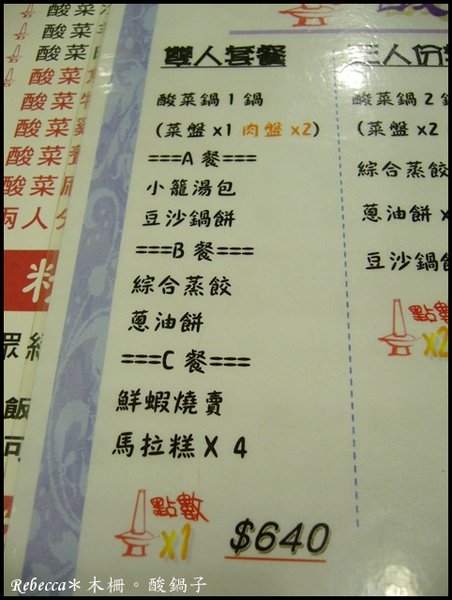 酸菜
酸菜
酸菜
酸菜
酸菜
酸菜
酸菜
兩人分
雙人套餐
酸菜鍋1鍋
(菜盤x1 肉盤x2)
===A 餐===
小籠湯包
豆沙鍋餅
===B 餐===
綜合蒸餃
蔥油餅
===C 餐===
鮮蝦燒賣
馬拉糕X 4
點數
x1
$640
三人份
酸菜鍋2
(菜盤x2
綜合蒸餃
蔥油餅
豆沙鍋餅
點數
x2
Rebecca*木柵。酸鍋子